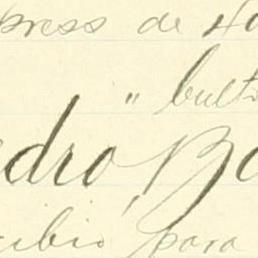 press de Ha
" bult
edro, Ba
cibio para